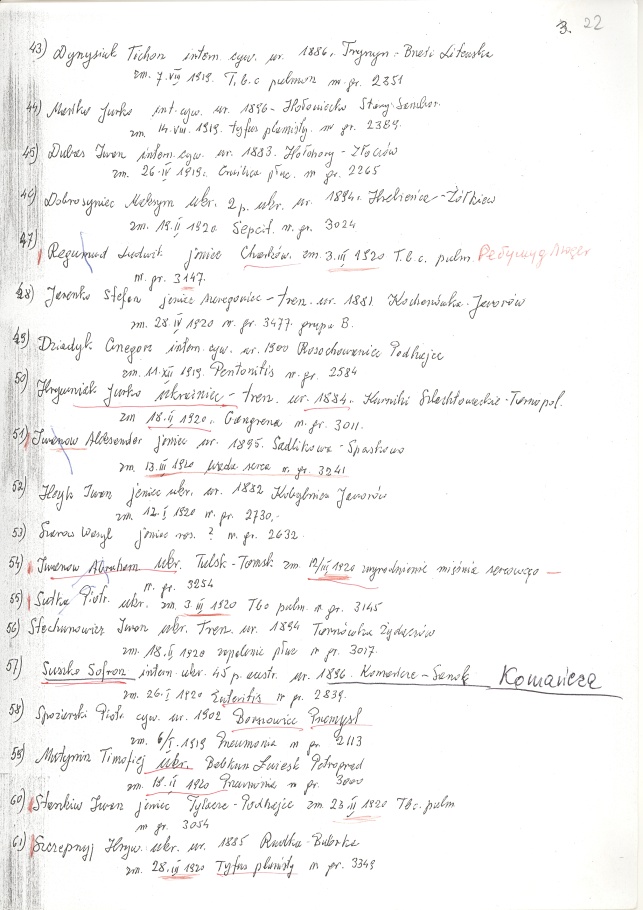 3. 22
43) Dynysiuk Tichon intern. cyw. ur. 1886, Tryszyn - Brześć Litewska
zm. 7.VIII 1919. T.b.c pulmon nr gr. 2351
44) Maśko Jurko int. cyw. ur. 1896 - Hołowiecko Stary-Sambor.
zm. 14.VIII. 1919. tyfus plamisty nr gr. 2389.
45) Dubas Iwan intern. cyw. ur. 1883. Hołohory - Złoczów
zm. 26-IV 1919. Gruźlica płuc. nr gr. 2265
46) Dobrosyniec Maksym ukr. 2 p. ukr. ur. 1894. - Żółkiew
zm. 19.II 1920 nr gr. 3024
47) Regumud Ludwik jeniec Charków. zm. 3.III 1920 T.b.c. pulm.
nr gr. 3147.
48) Jarenko Stefan jeniec - tren. ur. 1881. Kochanówka - Jaworów
zm. 28.IV 1920 nr gr. 3477. grupa B.
49) Dziadyk Grzegorz intern. cyw. ur. 1900 Rosochowaniec Podhajce
zm. 11.XII 1919. Peritonitis nr gr. 2584
50) Hryniak Jurko ukrainiec - tren. ur. 1884. Kurniki Szlachtowieckie - Tarnopol.
zm 18.II 1920. Gangrena nr gr. 3011.
51) Iwanow Aleksander jeniec ur. 1895. Sadlikowa - Spaskowo
zm. 13.III 1920 wada serca nr gr. 3241
52) Iwan jeniec ukr. ur. 1882 Kobylnica Jaworów
zm. 12.I 1920 nr gr. 2730.
53) Wasyl jeniec ros. ? nr gr. 2632
54) Iwanow Abraham ukr. Tulsk - Tomsk zm 12/III 1920 zwyrodnienie mięśnia sercowego —
nr gr. 3254
55) Sutka Piotr. ukr. zm. 3.III 1920 Tbc pulm. nr gr. 3145
56) Stechunowicz Iwan ukr. Tren. ur. 1894 Tarnówka Żydaczów
zm. 18.II 1920 zapalenie płuc nr gr. 3017.
57) Suszko Sofron intern. ukr. 45 p. austr. ur. 1896. Komańcze - Sanok Komańcza
zm. 26.I 1920 Enteritis nr gr. 2839.
58) Spozierski Piotr cyw. ur. 1902 Przemyśl
zm. 6/I. 1919 Pneumonia nr gr. 2113
59) Timofiej ukr. Petrograd
zm. 19.II 1920 Pneumonia nr gr. 3000
60) Stankiw Iwan jeniec - Podhajce zm 23.II 1920 Tbc. pulm
nr gr. 3054
61) Szczepnyj Hryw. ukr. ur. 1885 Rudka - Buborka
zm. 28.III 1920 Tyfus plamisty nr gr. 3349